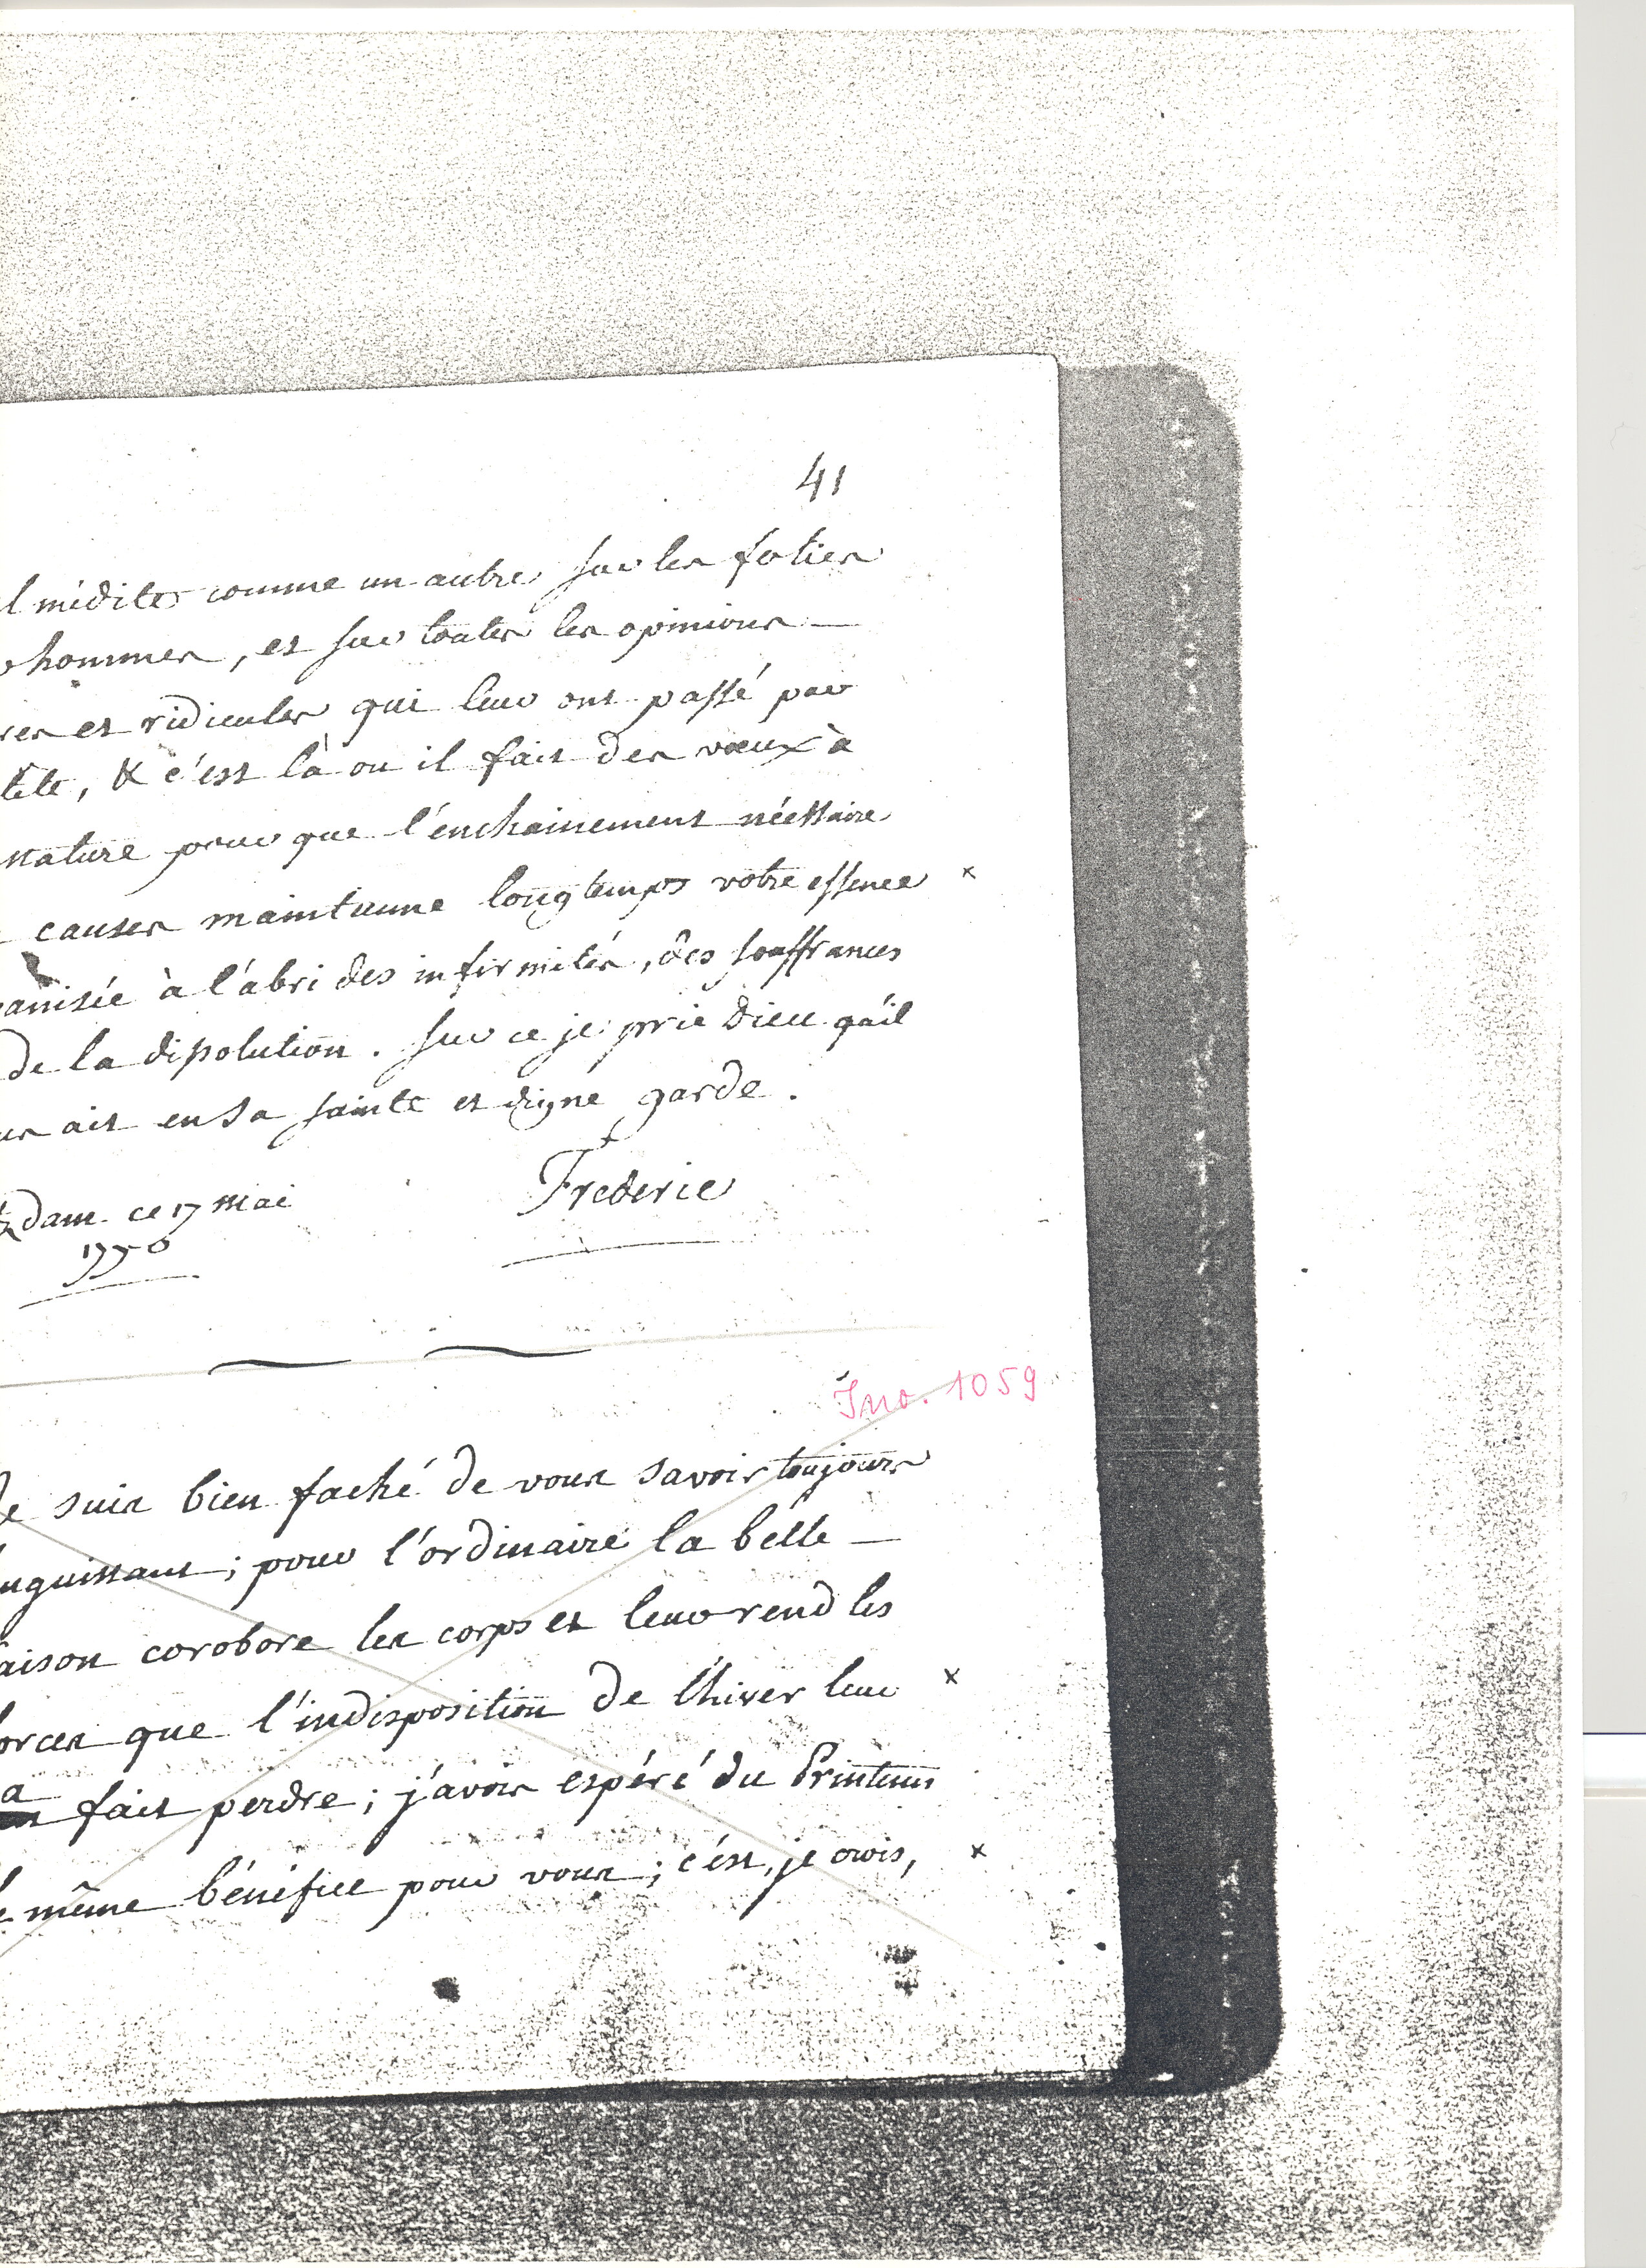 41
l médite comme un autre sur les folies
hommes, et sur toutes les opinions
res et ridicules qui leur ont passé par
tête, & c'est là ou il fait des vœux à
nature pour que l'enchainement nécessaire
causes maintienne longtemps votre essence x
anisée à l'abri des infirmités, des souffrances
de la dissolution. Sur ce je prie Dieu qu'il
us ait en sa sainte et digne garde.
dam ce 17 mai Fréderic
1770
Ino. 1059
Je suis bien faché de vous savoir toujours
nguissant; pour l'ordinaire la belle
aison corobore les corps et leur rend les
orces que l'indisposition de l'hiver leur x
a fait perdre; j'avois espéré du Printems
le même bénéfice pour vous; c'est, je crois, x